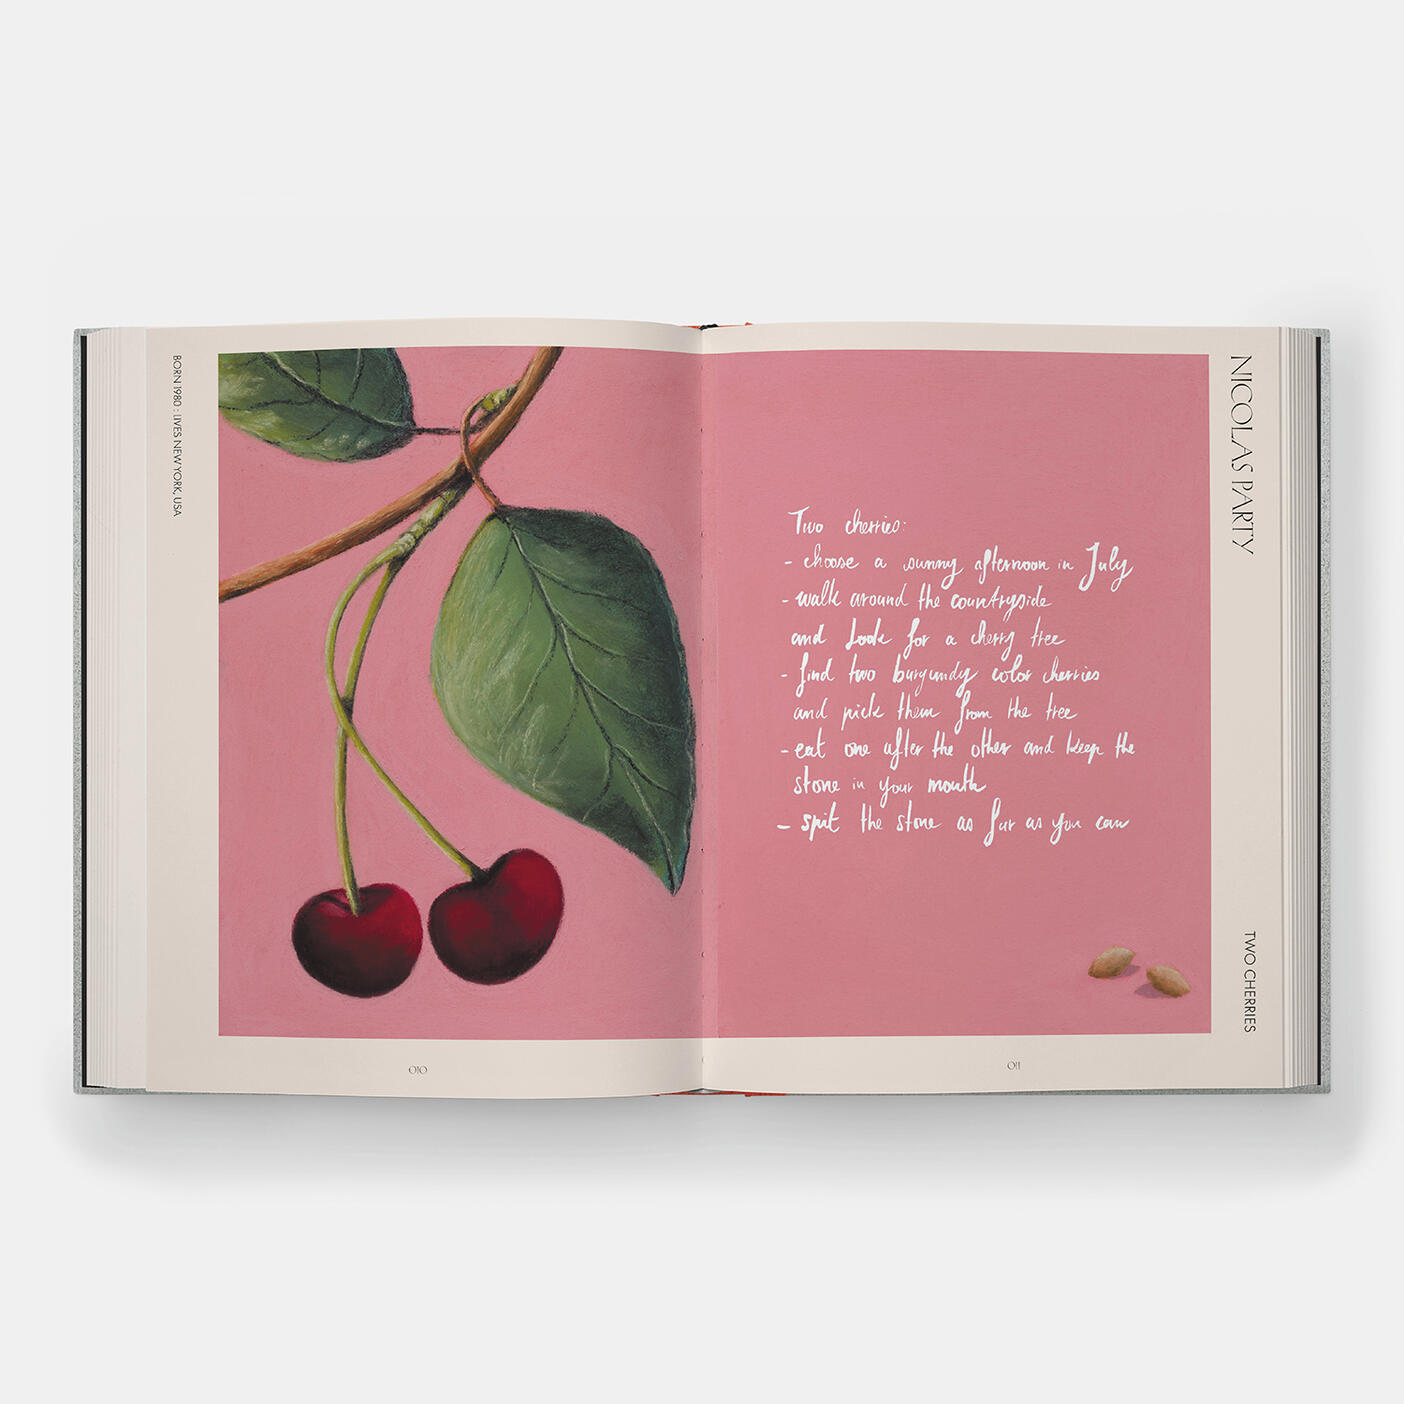 BORN 1980 : LIVES NEW YORK, USA
010
Two cherries:
- choose a sunny afternoon in July
- walk around the countryside
and look for a cherry tree
- find two burgundy color cherries
and pick them from the tree
- eat one after the other and keep the
stone in your mouth
- spit the stone as far as you can
011
NICOLAS PARTY
TWO CHERRIES